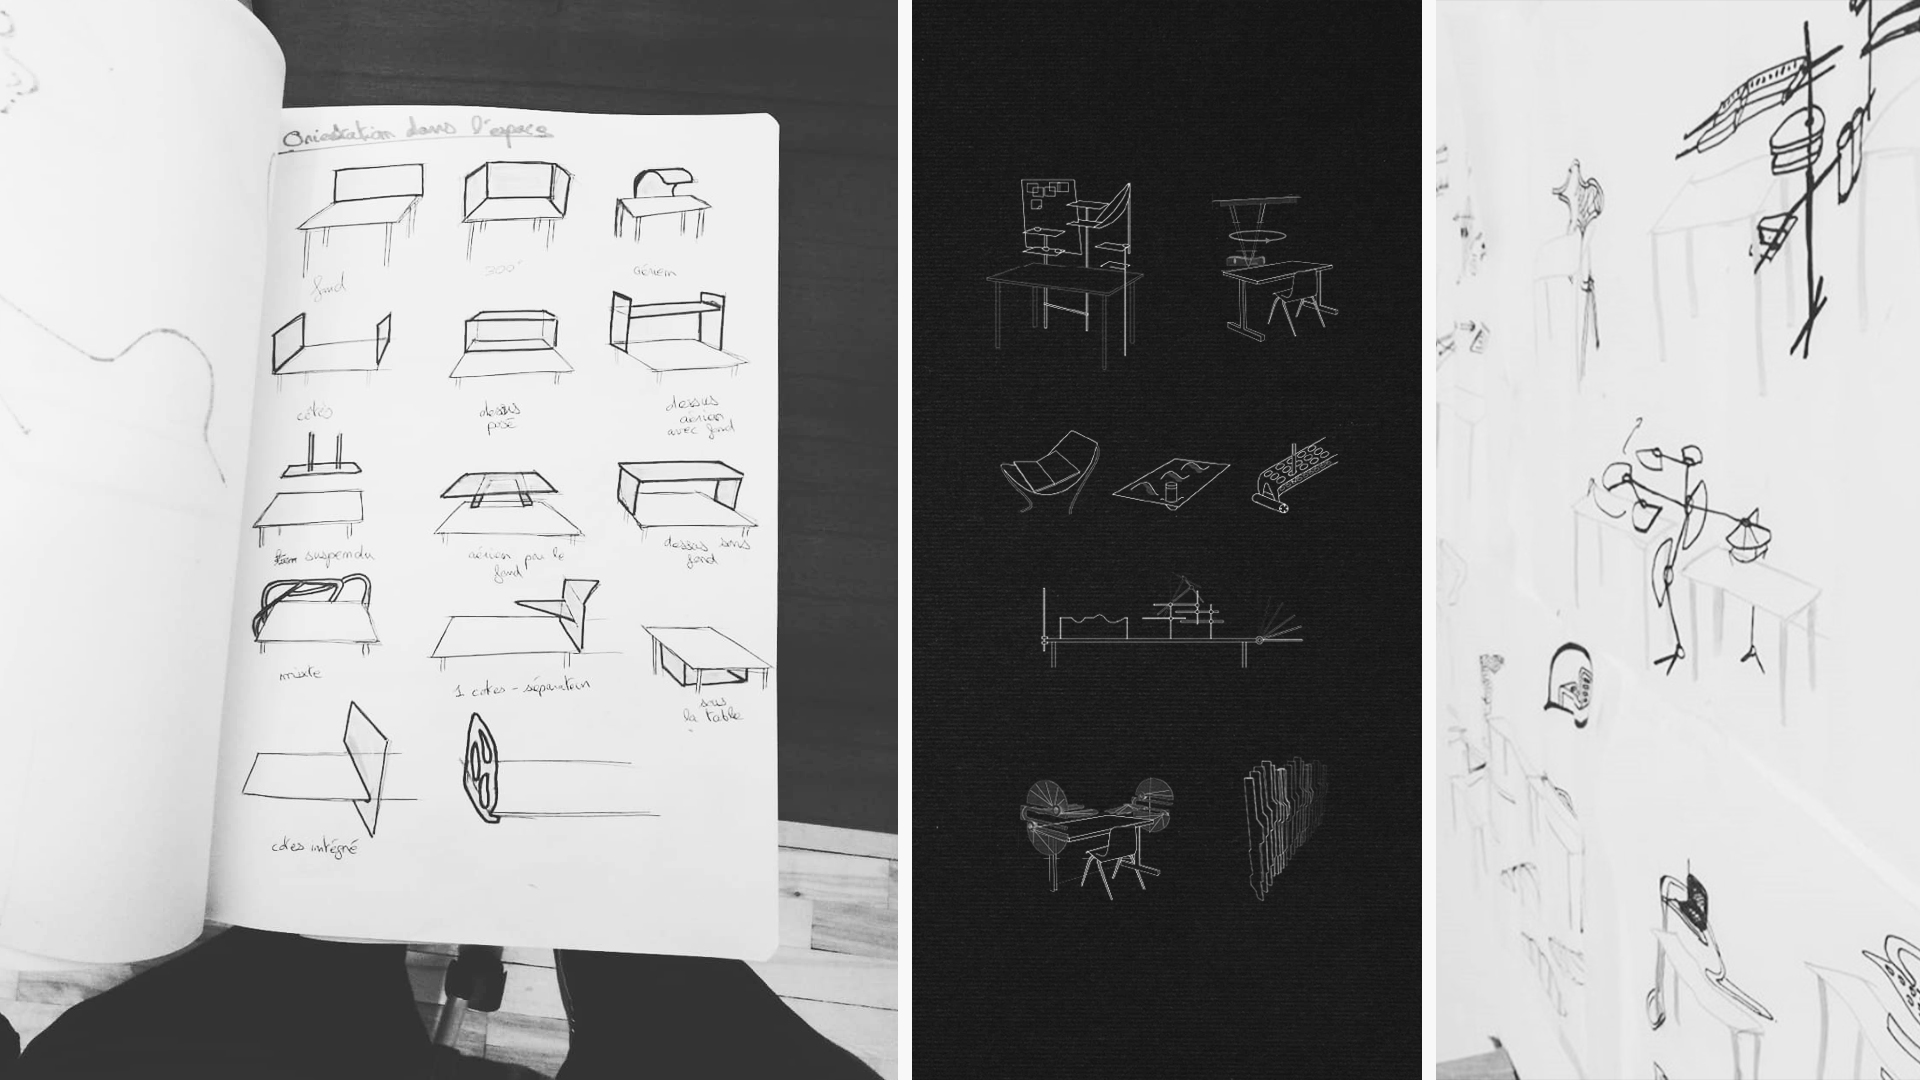 Orientation dans l'espace
fond
300°
aérien
côtés
dessus
posé
dessus
aérien
avec fond
suspendu
aérien par le
fond
dessus sans
fond
mixte
1 cotes - séparation
sous
la table
cotes intégré